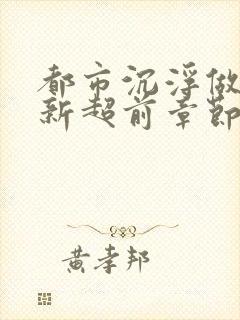 都市沉浮做
新超前章節
黄孝邦